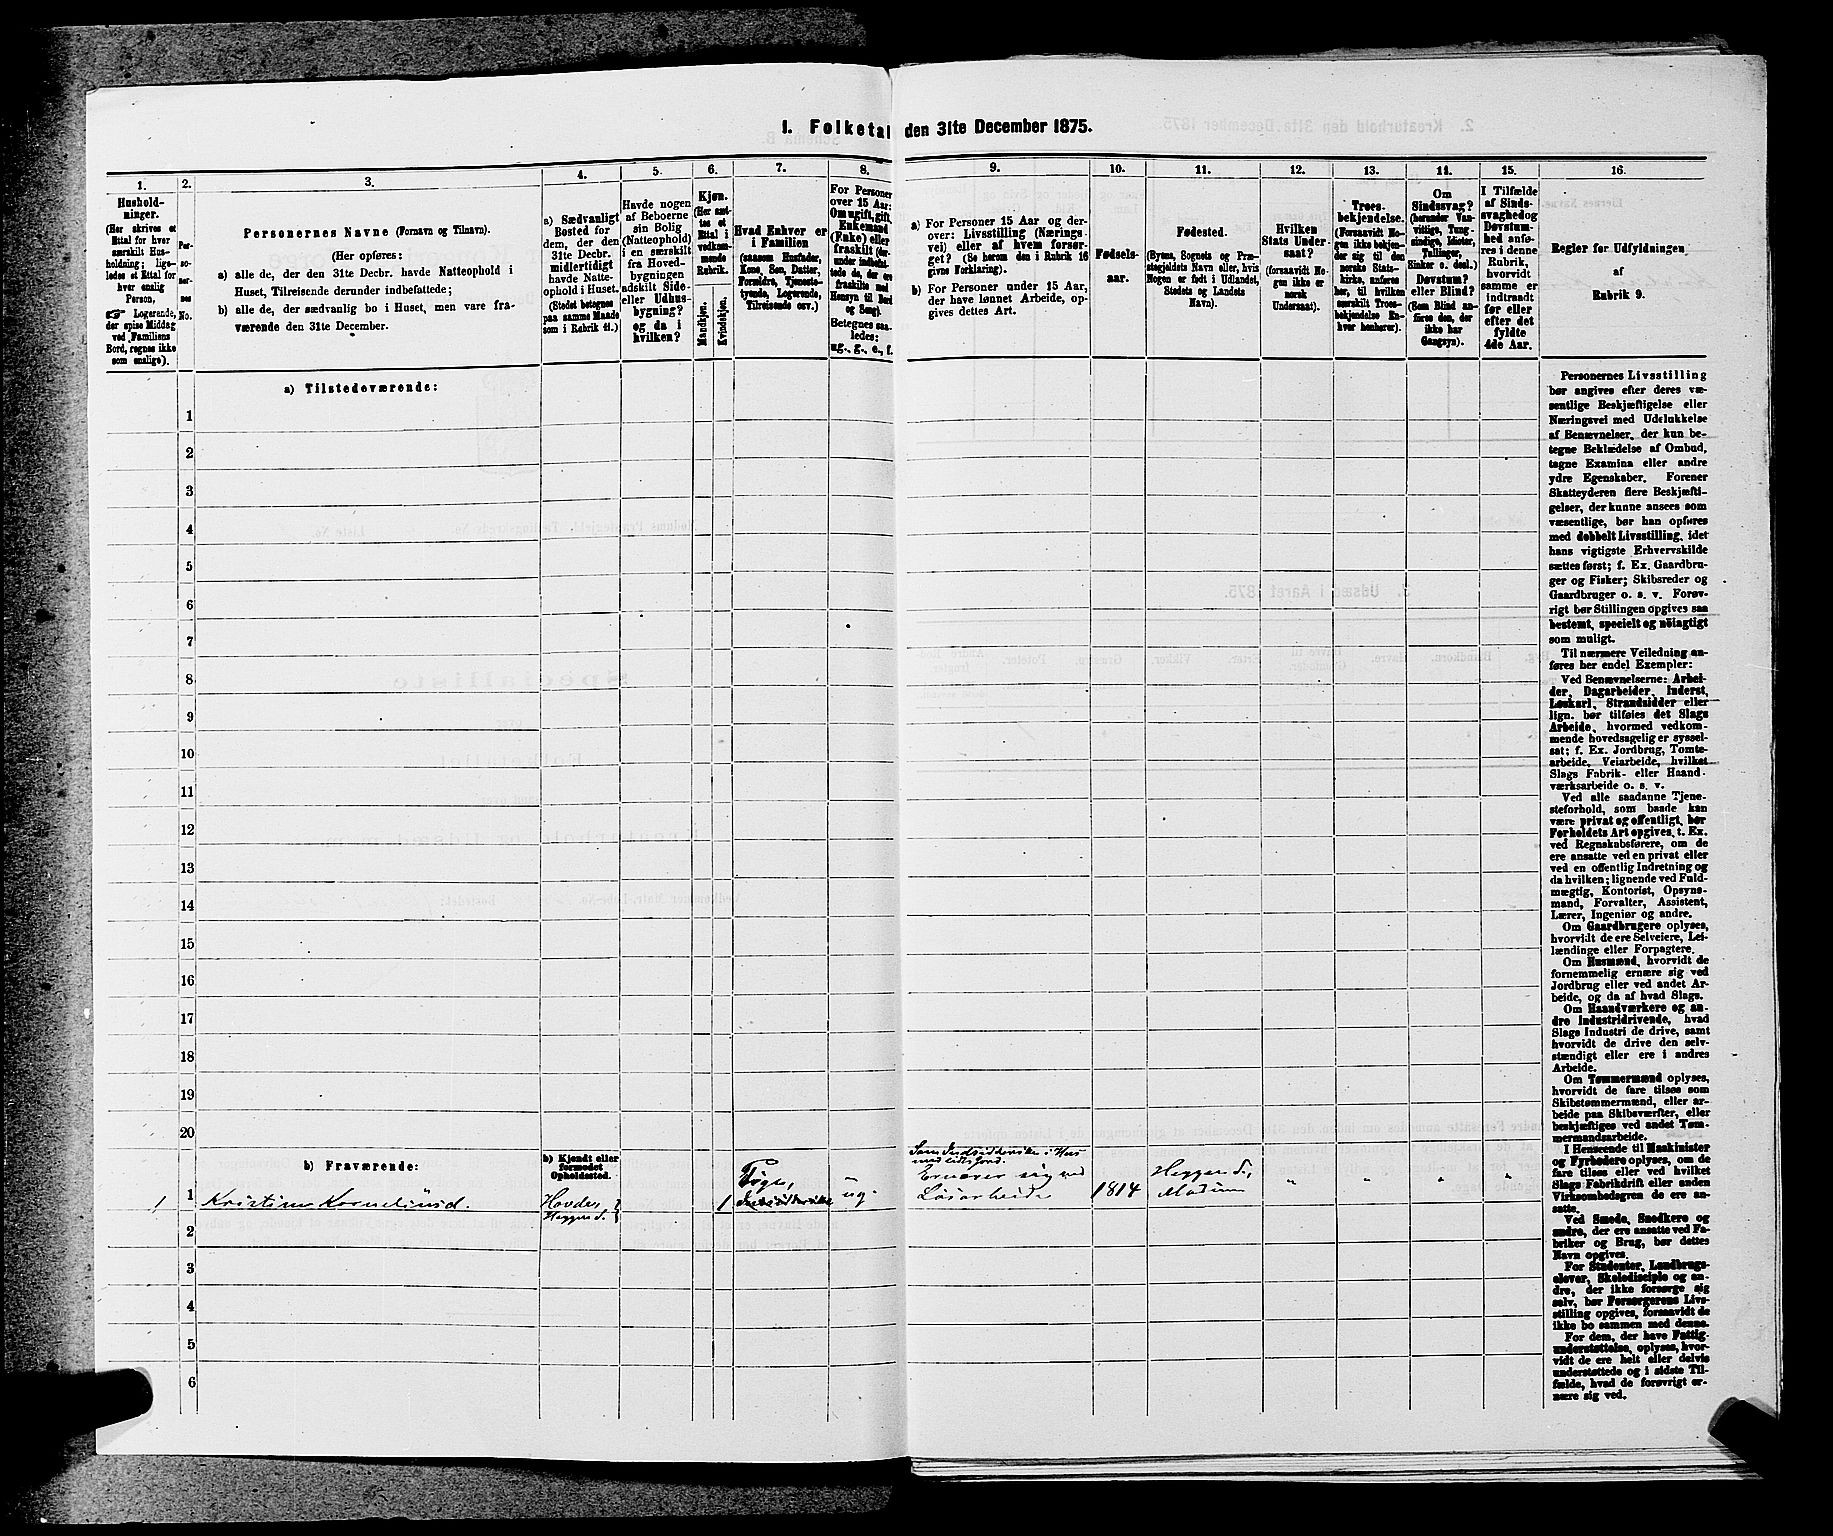 1. Folketal den 31te December 1875.
1.
Hushold-
ninger.
(Her skrives et
Ettal for hver
særskilt Hus-
holdning; lige-
ledes et Ettal for
hver enslig
Person.
☞ Logerende,
der spise Middag
ved Familiens
Bord, regnes ikke
som enslige).
2.
Per-
so-
ner-
nes
No.
3.
Personernes Navne (Fornavn og Tilnavn).
(Her opføres:
a) alle de, der den 31te Decbr. havde Natteophold i
Huset, Tilreisende derunder indbefattede;
b) alle de, der sædvanlig bo i Huset, men vare fra-
værende den 31te December.
4.
a) Sædvanligt
Bosted for
dem, der den
31te Decbr.
midlertidigt
havde Natte-
ophold i Huset.
(Stedet betegnes
paa samme Maade
som i Rubrik 11.)
5.
Havde nogen
af Beboerne
sin Bolig
(Natteophold)
i en særskilt
fra Hoved-
bygningen
adskilt Side-
eller Udhus-
bygning?
og da i
hvilken?
6.
Kjøn.
(Her sæt-
tes et
Ettal i
vedkom-
mende
Rubrik.
Mandkjøn.
Kvindekjøn.
7.
Hvad Enhver er
i Familien
(saasom Husfader,
Kone, Søn, Datter,
Forældre, Tjeneste-
tyende, Logerende,
Tilreisende osv.)
8.
For Personer
over 15 Aar:
Om ugift, gift,
Enkemand
(Enke) eller
fraskilt (der-
under indbefat-
tede de, der ere
fraskilte med
Hensyn til Bord
og Seng).
Betegnes saa-
ledes:
ug., g., e., f.
9.
a) For Personer 15 Aar og der-
over: Livsstilling (Nærings-
vei) eller af hvem forsør-
get? (Se herom den i Rubrik 16
givne Forklaring).
b) For Personer under 15 Aar,
der have lønnet Arbeide, op-
gives dettes Art.
10.
Fødsels-
aar.
11.
Fødested.
(Byens, Sognets og Præ-
stegjeldets Navn eller, hvis
Nogen er født i Udlandet,
Stedets og Landets
Navn).
12.
Hvilken
Stats Under-
saat?
(forsaavidt No-
gen ikke er
norsk
Undersaat).
13.
Troes-
bekjendelse.
(Forsaavidt No-
gen ikke bekjen-
der sig til den
norske Stats-
kirke, anføres
her, til hvilken
særskilt Troes-
bekjendelse En-
hver henhører).
14.
Om
Sindssvag?
(herunder Van-
vittige, Tung-
sindige, Idioter,
Tullinger,
Sinker o. desl.)
Døvstum?
eller Blind?
(Som Blind an-
føres den, der
ikke har
Gangsyn).
15.
I Tilfælde
af Sinds-
svaghed og
Døvstum-
hed anfø-
res i denne
Rubrik,
hvorvidt
samme er
indtraadt
før eller
efter det
fyldte
4de Aar.
16.
Regler for Udfyldningen
af
Rubrik 9.
a) Tilstedeværende:
1
2
3
4
5
6
7
8
9
10
11
12
13
14
15
16
17
18
19
20
b) Fraværende:
b) Kjendt eller
formodet
Opholdssted.
1 1 Kristine Kornelinsd. Hovde, Heggen S. 1 Pige, Inderstinde ug. Ernærer sig ved Løsarbeide 1814 Heggen S., Modum " " " "
2
3
4
5
6
Personernes Livsstilling
bør angives efter deres væ-
sentlige Beskjæftigelse eller
Næringsvei med Udelukkelse
af Benævnelser, der kun be-
tegne Beklædelse af Ombud,
tagne Examina eller andre
ydre Egenskaber. Forener
Skatteyderen flere Beskjæfti-
gelser, der kunne ansees som
væsentlige, bør han opføres
med dobbelt Livsstilling, idet
hans vigtigste Erhvervskilde
sættes først; f. Ex. Gaardbru-
ger og Fisker; Skibsreder og
Gaardbruger o. s. v. Forøv-
rigt bør Stillingen opgives saa
bestemt, specielt og nøiagtigt
som muligt.
Til nærmere Veiledning an-
føres her endel Exempler:
Ved Benævnelserne: Arbei-
der, Dagarbeider, Inderst,
Løskarl, Strandsidder eller
lign. bør tilføies det Slags
Arbeide, hvormed vedkom-
mende hovedsagelig er syssel-
sat; f. Ex. Jordbrug, Tomte-
arbeide, Veiarbeide, hvilket
Slags Fabrik- eller Haand-
værksarbeide o. s. v.
Ved alle saadanne Tjene-
steforhold, som baade kan
være privat og offentligt, bør
Forholdets Art opgives, t. Ex.
ved Regnskabsførere, om de
ere ansatte ved en privat eller
ved en offentlig Indretning og
da hvilken; lignende ved Fuld-
mægtig, Kontorist, Opsyns-
mand, Forvalter, Assistent,
Lærer, Ingeniør og andre.
Om Gaardbrugere oplyses,
hvorvidt de ere Selveiere, Lei-
lændinge eller Forpagtere.
Om Husmænd, hvorvidt de
fornemmelig ernære sig ved
Jordbrug eller ved andet Ar-
beide, og da af hvad Slags.
Om Haandværkere og an-
dre Industridrivende, hvad
Slags Industri de drive, samt
hvorvidt de drive den selv-
stændigt eller ere i andres
Arbeide.
Om Tømmermænd oplyses,
hvorvidt de fare tilsøs som
Skibstømmermænd, eller ar-
beide paa Skibsværfter, eller
beskjæftiges ved andet Tøm-
mermandsarbeide.
I Henseende til Maskinister
og Fyrbødere oplyses, om de
fare tilsøs eller ved hvilket
Slags Fabrikdrift eller anden
Virksomhed de ere an-
satte.
Ved Smede, Snedkere og
andre, der ere ansatte ved Fa-
briker og Brug, bør dettes
Navn opgives.
For Studenter, Landbrugs-
elever, Skoledisciple og an-
dre, der ikke forsørge sig
selv, bør Forsørgerens Livs-
stilling opgives, forsaavidt de
ikke bo sammen med denne.
For dem, der have Fattig-
understøttelse, oplyses, hvor-
vidt de ere helt eller delvis
understøttede og i sidste Til-
fælde, hvad de forøvrigt er-
nære sig ved.